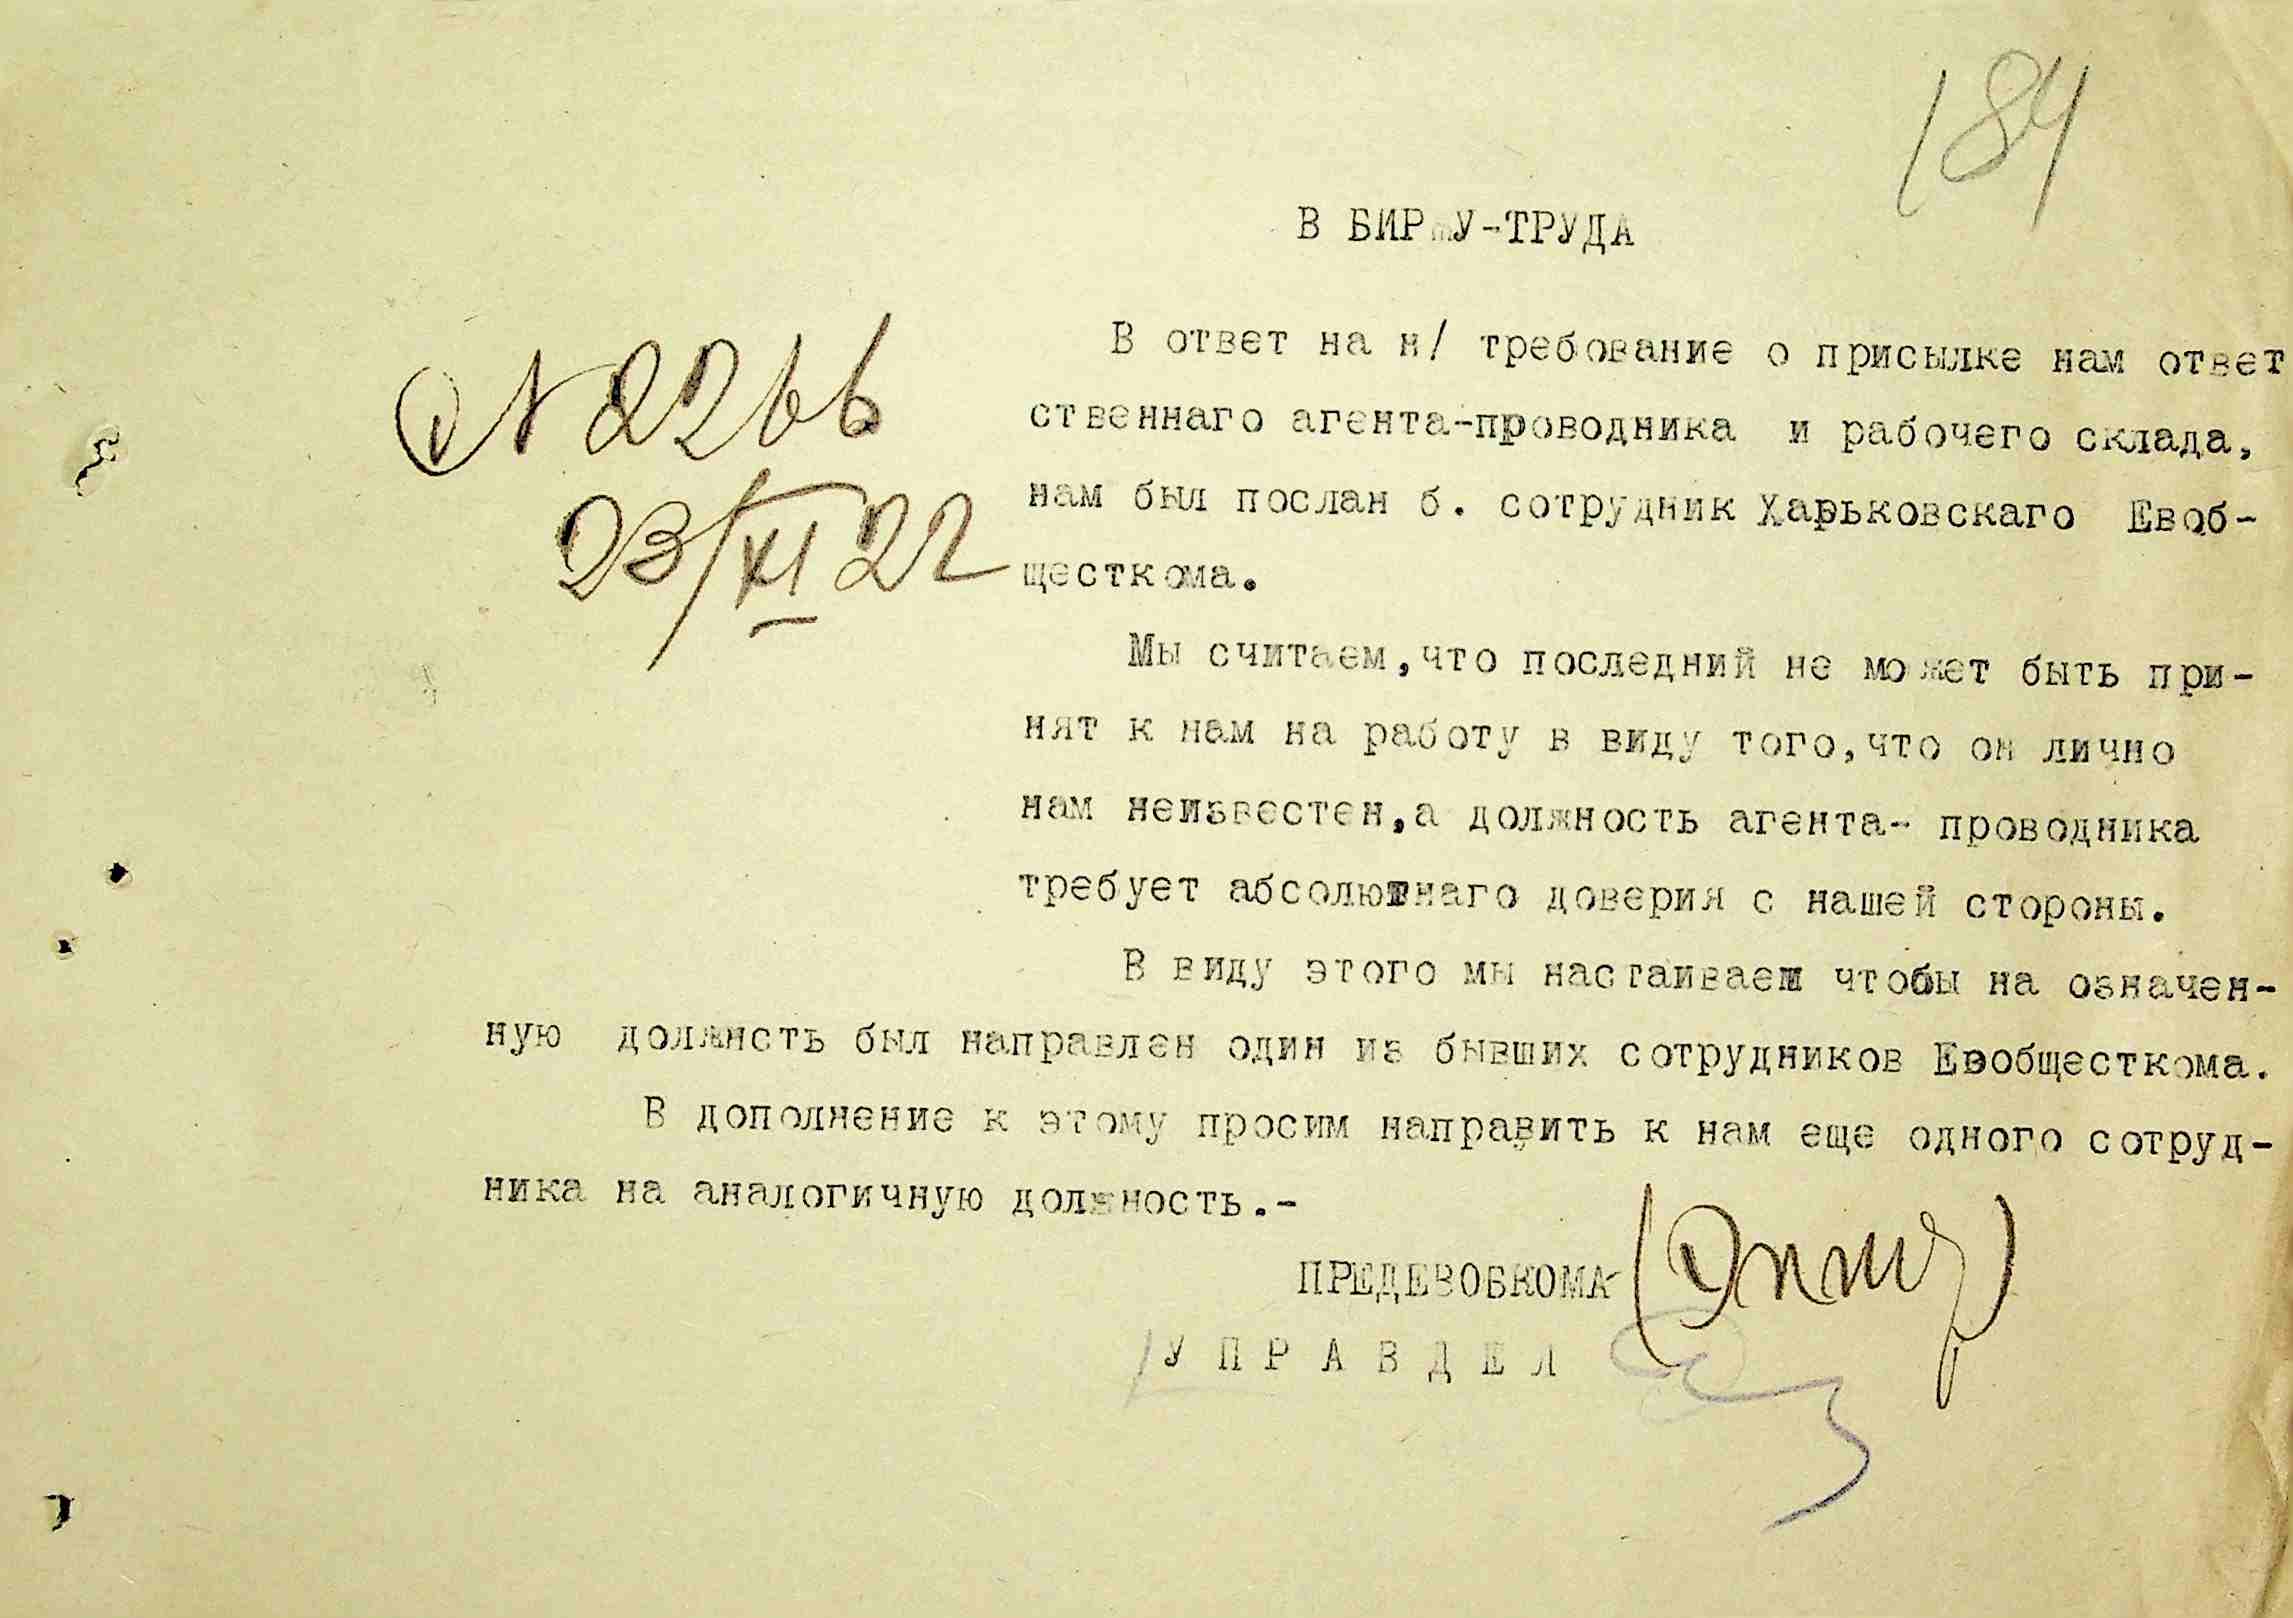 184
В БИРЖУ-ТРУДА
№ 2266
23/XI 22
В ответ на н/ требование о присылке нам ответ
ственнаго агента-проводника и рабочего склада,
нам был послан б. сотрудник Харьковскаго Евоб-
щесткома.
Мы считаем,что последний не может быть при-
нят к нам на работу в виду того,что он лично
нам неизвестен,а должность агента- проводника
требует абсолютнаго доверия с нашей стороны.
В виду этого мы настаиваем чтобы на означен-
ную должнсть был направлен один из бывших сотрудников Евобщесткома.
В дополнение к этому просим направить к нам еще одного сотруд-
ника на аналогичную должность.-
ПРЕДЕВОБКОМА
УПРАВДЕЛ